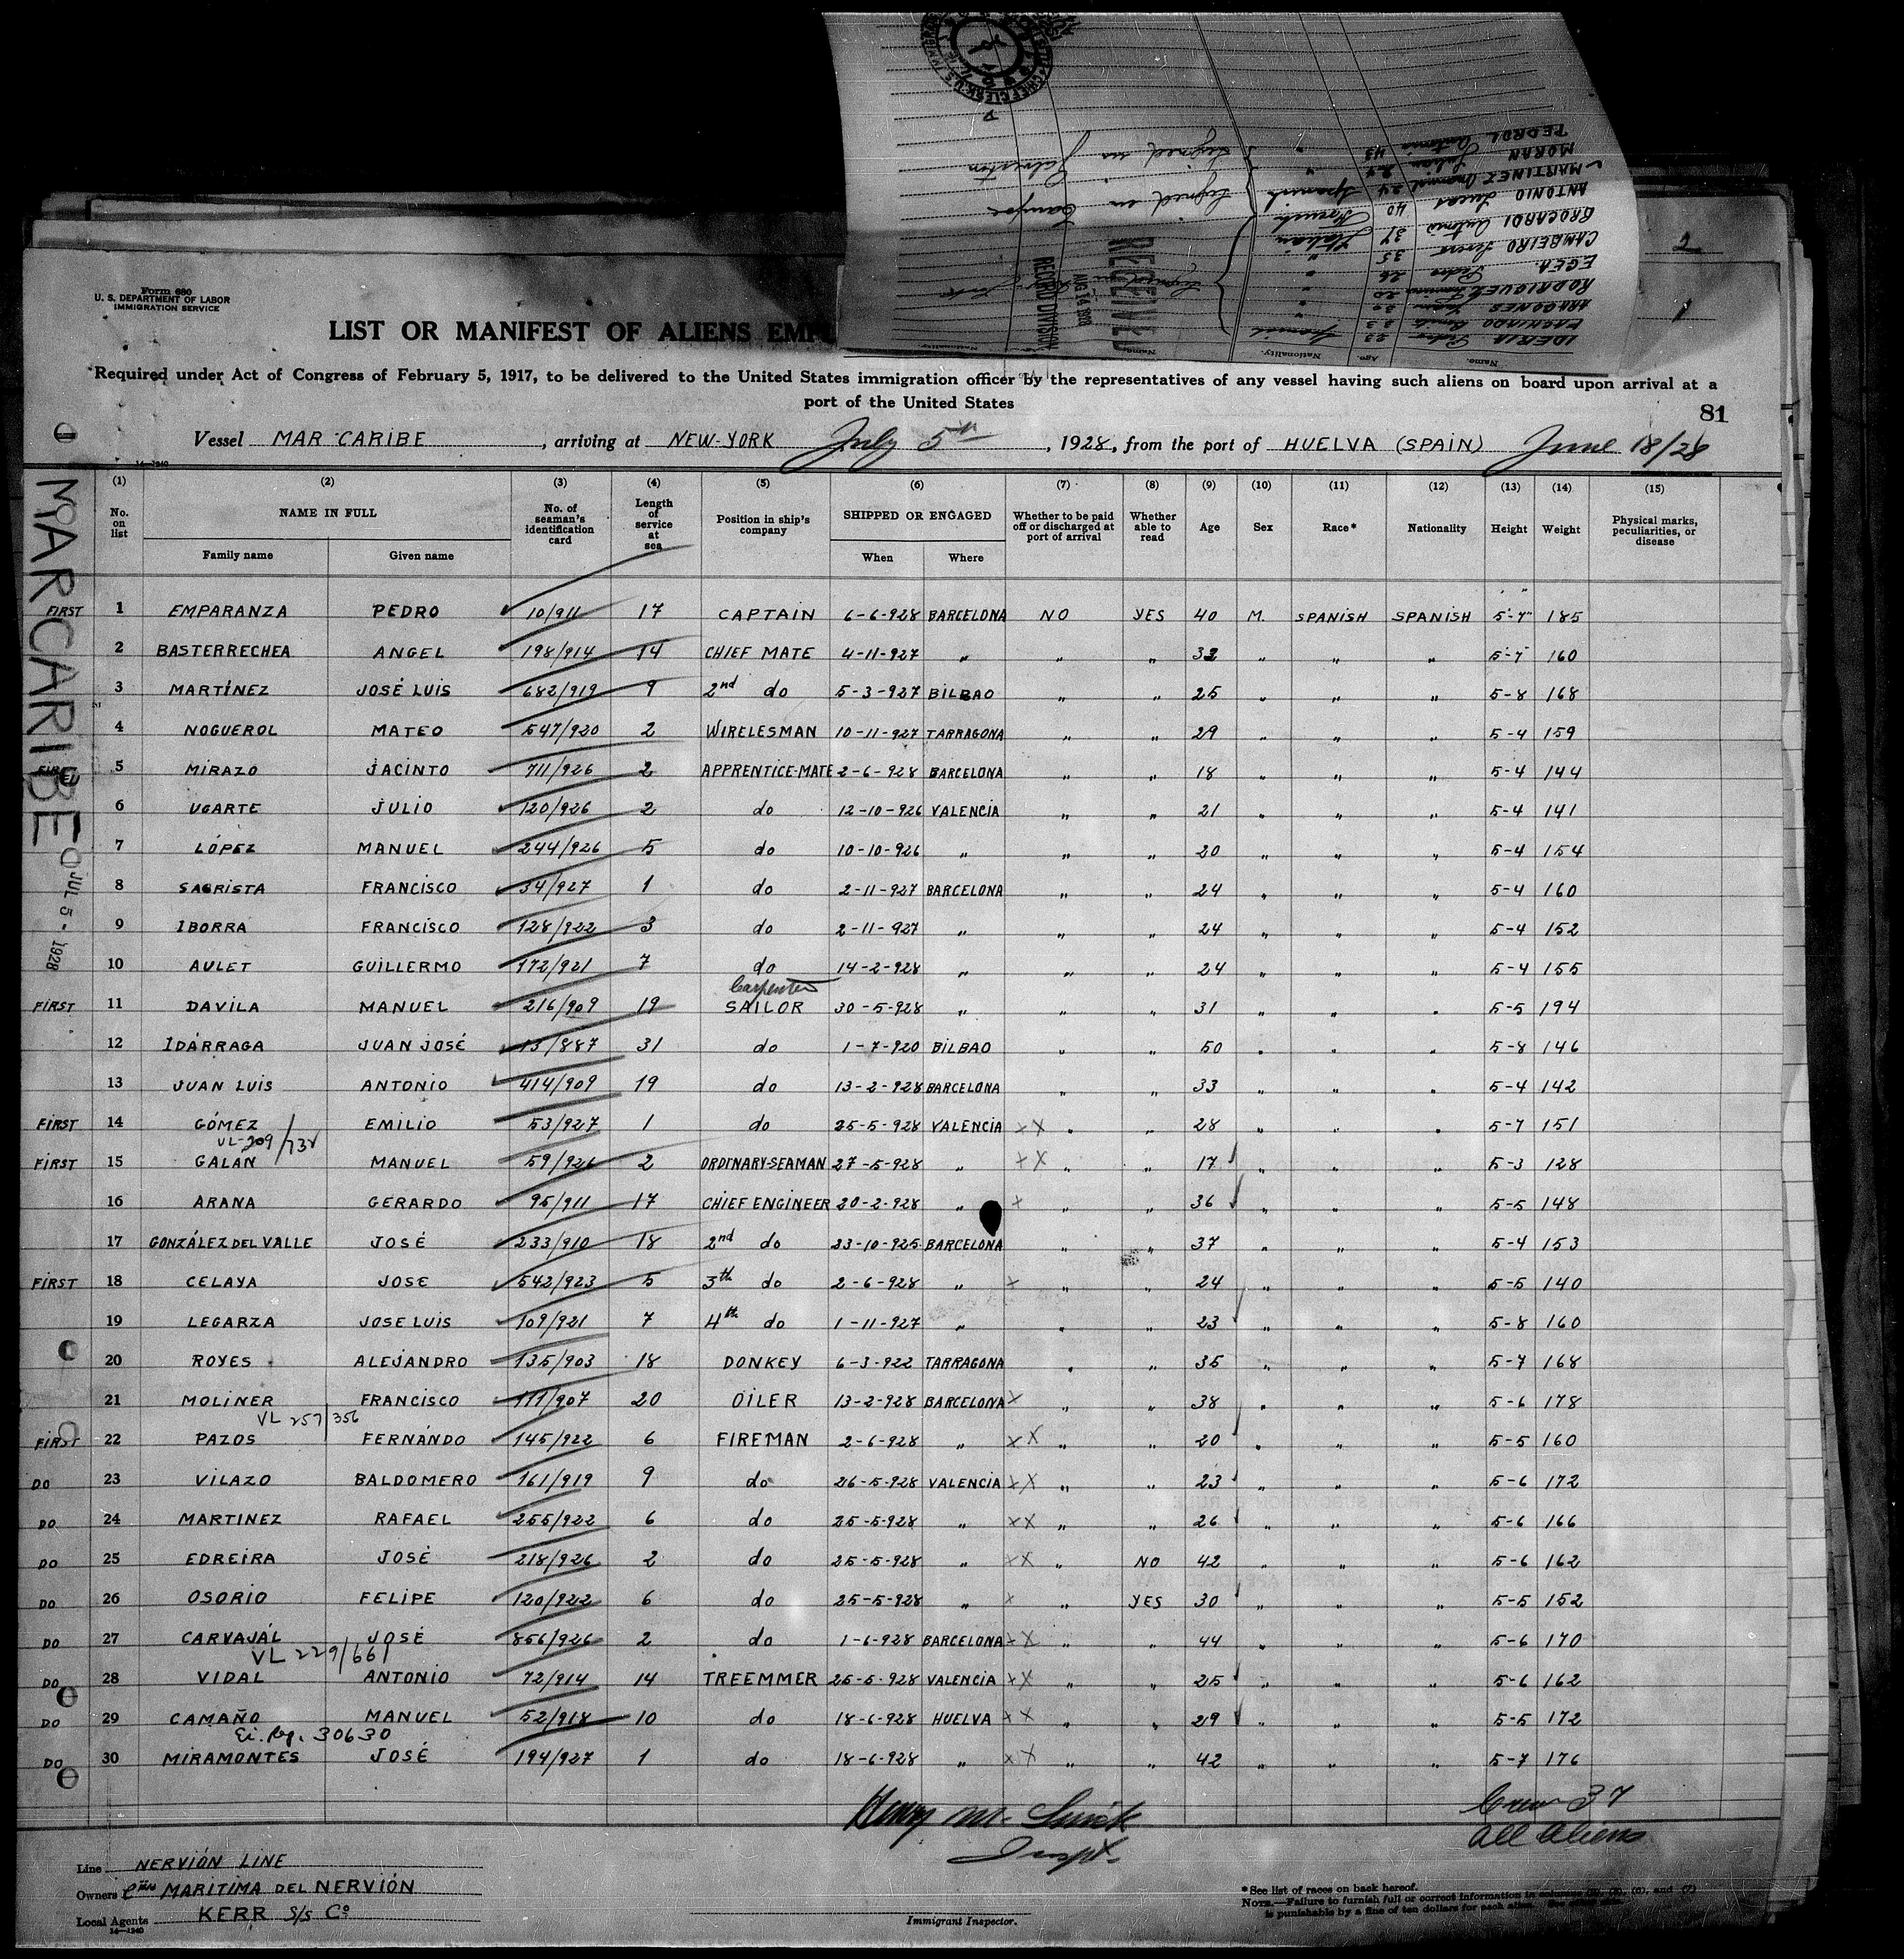 Form 680
U. S. DEPARTMENT OF LABOR
IMMIGRATION SERVICE
LIST OR MANIFEST OF ALIENS
Required under Act of Congress of February 5, 1917, to be delivered to the United States immigration officer by the representatives of any vessel having such aliens on board upon arrival at a
port of the United States
81
Vessel MAR CARIBE, arriving at NEW-YORK July 5th, 1928, from the port of HUELVA (SPAIN) June 18/28
MAR CARIBE
JUL 5 - 1928
RECEIVED
AUG 14 1928
RECORD DIVISION
Name. Age. Nationality. Name. Nationality.
IDERIA Pedro 23 Spanish
MACHIADO 23 "
ARAGONES 32 "
RODRIGUEZ 20 "
EGEA Pedro 26 "
CAMBEIRO 35 "
BROCARDI Antonio 37 Italian
ANTONIO Lucas 40
MARTINEZ 24 Spanish
MORAN Julian 24 "
PEDROL Antonio 43 "
Signed in Tampa
Signed in Galveston
2
1
(1) (2) (3) (4) (5) (6) (7) (8) (9) (10) (11) (12) (13) (14) (15)
No. on list NAME IN FULL No. of seaman's identification card Length of service at sea Position in ship's company SHIPPED OR ENGAGED Whether to be paid off or discharged at port of arrival Whether able to read Age Sex Race* Nationality Height Weight Physical marks, peculiarities, or disease
Family name Given name When Where
FIRST 1 EMPARANZA PEDRO 10/911 17 CAPTAIN 6-6-928 BARCELONA NO YES 40 M. SPANISH SPANISH 5'-7" 185
2 BASTERRECHEA ANGEL 198/914 14 CHIEF MATE 4-11-927 " " " 32 " " " 5-7 160
3 MARTÍNEZ JOSÉ LUIS 682/919 9 2nd do 5-3-927 BILBAO " " 25 " " " 5-8 168
4 NOGUEROL MATEO 547/920 2 WIRELESMAN 10-11-927 TARRAGONA " " 29 " " " 5-4 159
FIRST 5 MIRAZO JACINTO 711/926 2 APPRENTICE-MATE 2-6-928 BARCELONA " " 18 " " " 5-4 144
6 UGARTE JULIO 120/926 2 do 12-10-926 VALENCIA " " 21 " " " 5-4 141
7 LÓPEZ MANUEL 244/926 5 do 10-10-926 " " " 20 " " " 5-4 154
8 SACRISTA FRANCISCO 34/927 1 do 2-11-927 BARCELONA " " 24 " " " 5-4 160
9 IBORRA FRANCISCO 128/922 3 do 2-11-927 " " " 24 " " " 5-4 152
10 AULET GUILLERMO 172/921 7 do 14-2-928 " " " 24 " " " 5-4 155
Carpenter
FIRST 11 DAVILA MANUEL 216/909 19 SAILOR 30-5-928 " " " 31 " " " 5-5 194
12 IDÁRRAGA JUAN JOSÉ 13/887 31 do 1-7-920 BILBAO " " 50 " " " 5-8 146
13 JUAN LUIS ANTONIO 414/909 19 do 13-2-928 BARCELONA " " 33 " " " 5-4 142
FIRST 14 GÓMEZ EMILIO 53/927 1 do 25-5-928 VALENCIA XX " " 28 " " " 5-7 151
VL-209/732
FIRST 15 GALÁN MANUEL 59/926 2 ORDINARY-SEAMAN 27-5-928 " XX " " 17 " " " 5-3 128
16 ARANA GERARDO 95/911 17 CHIEF ENGINEER 20-2-928 " X " " 36 " " " 5-5 148
17 GONZÁLEZ DEL VALLE JOSÉ 233/910 18 2nd do 23-10-925 BARCELONA " " 37 " " " 5-4 153
FIRST 18 CELAYA JOSE 542/923 5 3th do 2-6-928 " X " " 24 " " " 5-5 140
19 LEGARZA JOSE LUIS 109/921 7 4th do 1-11-927 " " " 23 " " " 5-8 160
20 ROYES ALEJANDRO 135/903 18 DONKEY 6-3-922 TARRAGONA " " 35 " " " 5-7 168
21 MOLINER FRANCISCO 111/907 20 OILER 13-2-928 BARCELONA X " " 38 " " " 5-6 178
VL 257/356
FIRST 22 PAZOS FERNÁNDO 145/922 6 FIREMAN 2-6-928 " XX " " 20 " " " 5-5 160
DO 23 VILAZO BALDOMERO 161/919 9 do 26-5-928 VALENCIA XX " " 23 " " " 5-6 172
DO 24 MARTINEZ RAFAEL 255/922 6 do 25-5-928 " XX " " 26 " " " 5-6 166
DO 25 EDREIRA JOSÉ 218/926 2 do 25-5-928 " XX " NO 42 " " " 5-6 162
DO 26 OSORIO FELIPE 120/922 6 do 25-5-928 " X " YES 30 " " " 5-5 152
DO 27 CARVAJÁL JOSÉ 856/926 2 do 1-6-928 BARCELONA XX " " 44 " " " 5-6 170
VL 229/661
DO 28 VIDAL ANTONIO 72/914 14 TREEMMER 25-5-928 VALENCIA XX " " 25 " " " 5-6 162
DO 29 CAMAÑO MANUEL 52/918 10 do 18-6-928 HUELVA XX " " 29 " " " 5-5 172
Ei. Reg. 30630
DO 30 MIRAMONTES JOSÉ 194/927 1 do 18-6-928 " XX " " 42 " " " 5-7 176
Henry M.
Inspt.
Crew 37
All Aliens
Line NERVIÓN LINE
Owners Cía MARITIMA DEL NERVIÓN
Local Agents KERR S/S Co
14—1240
Immigrant Inspector.
*See list of races on back hereof.
NOTE.—Failure to furnish full or correct information in columns (5), (6), and (7)
is punishable by a fine of ten dollars for each alien.